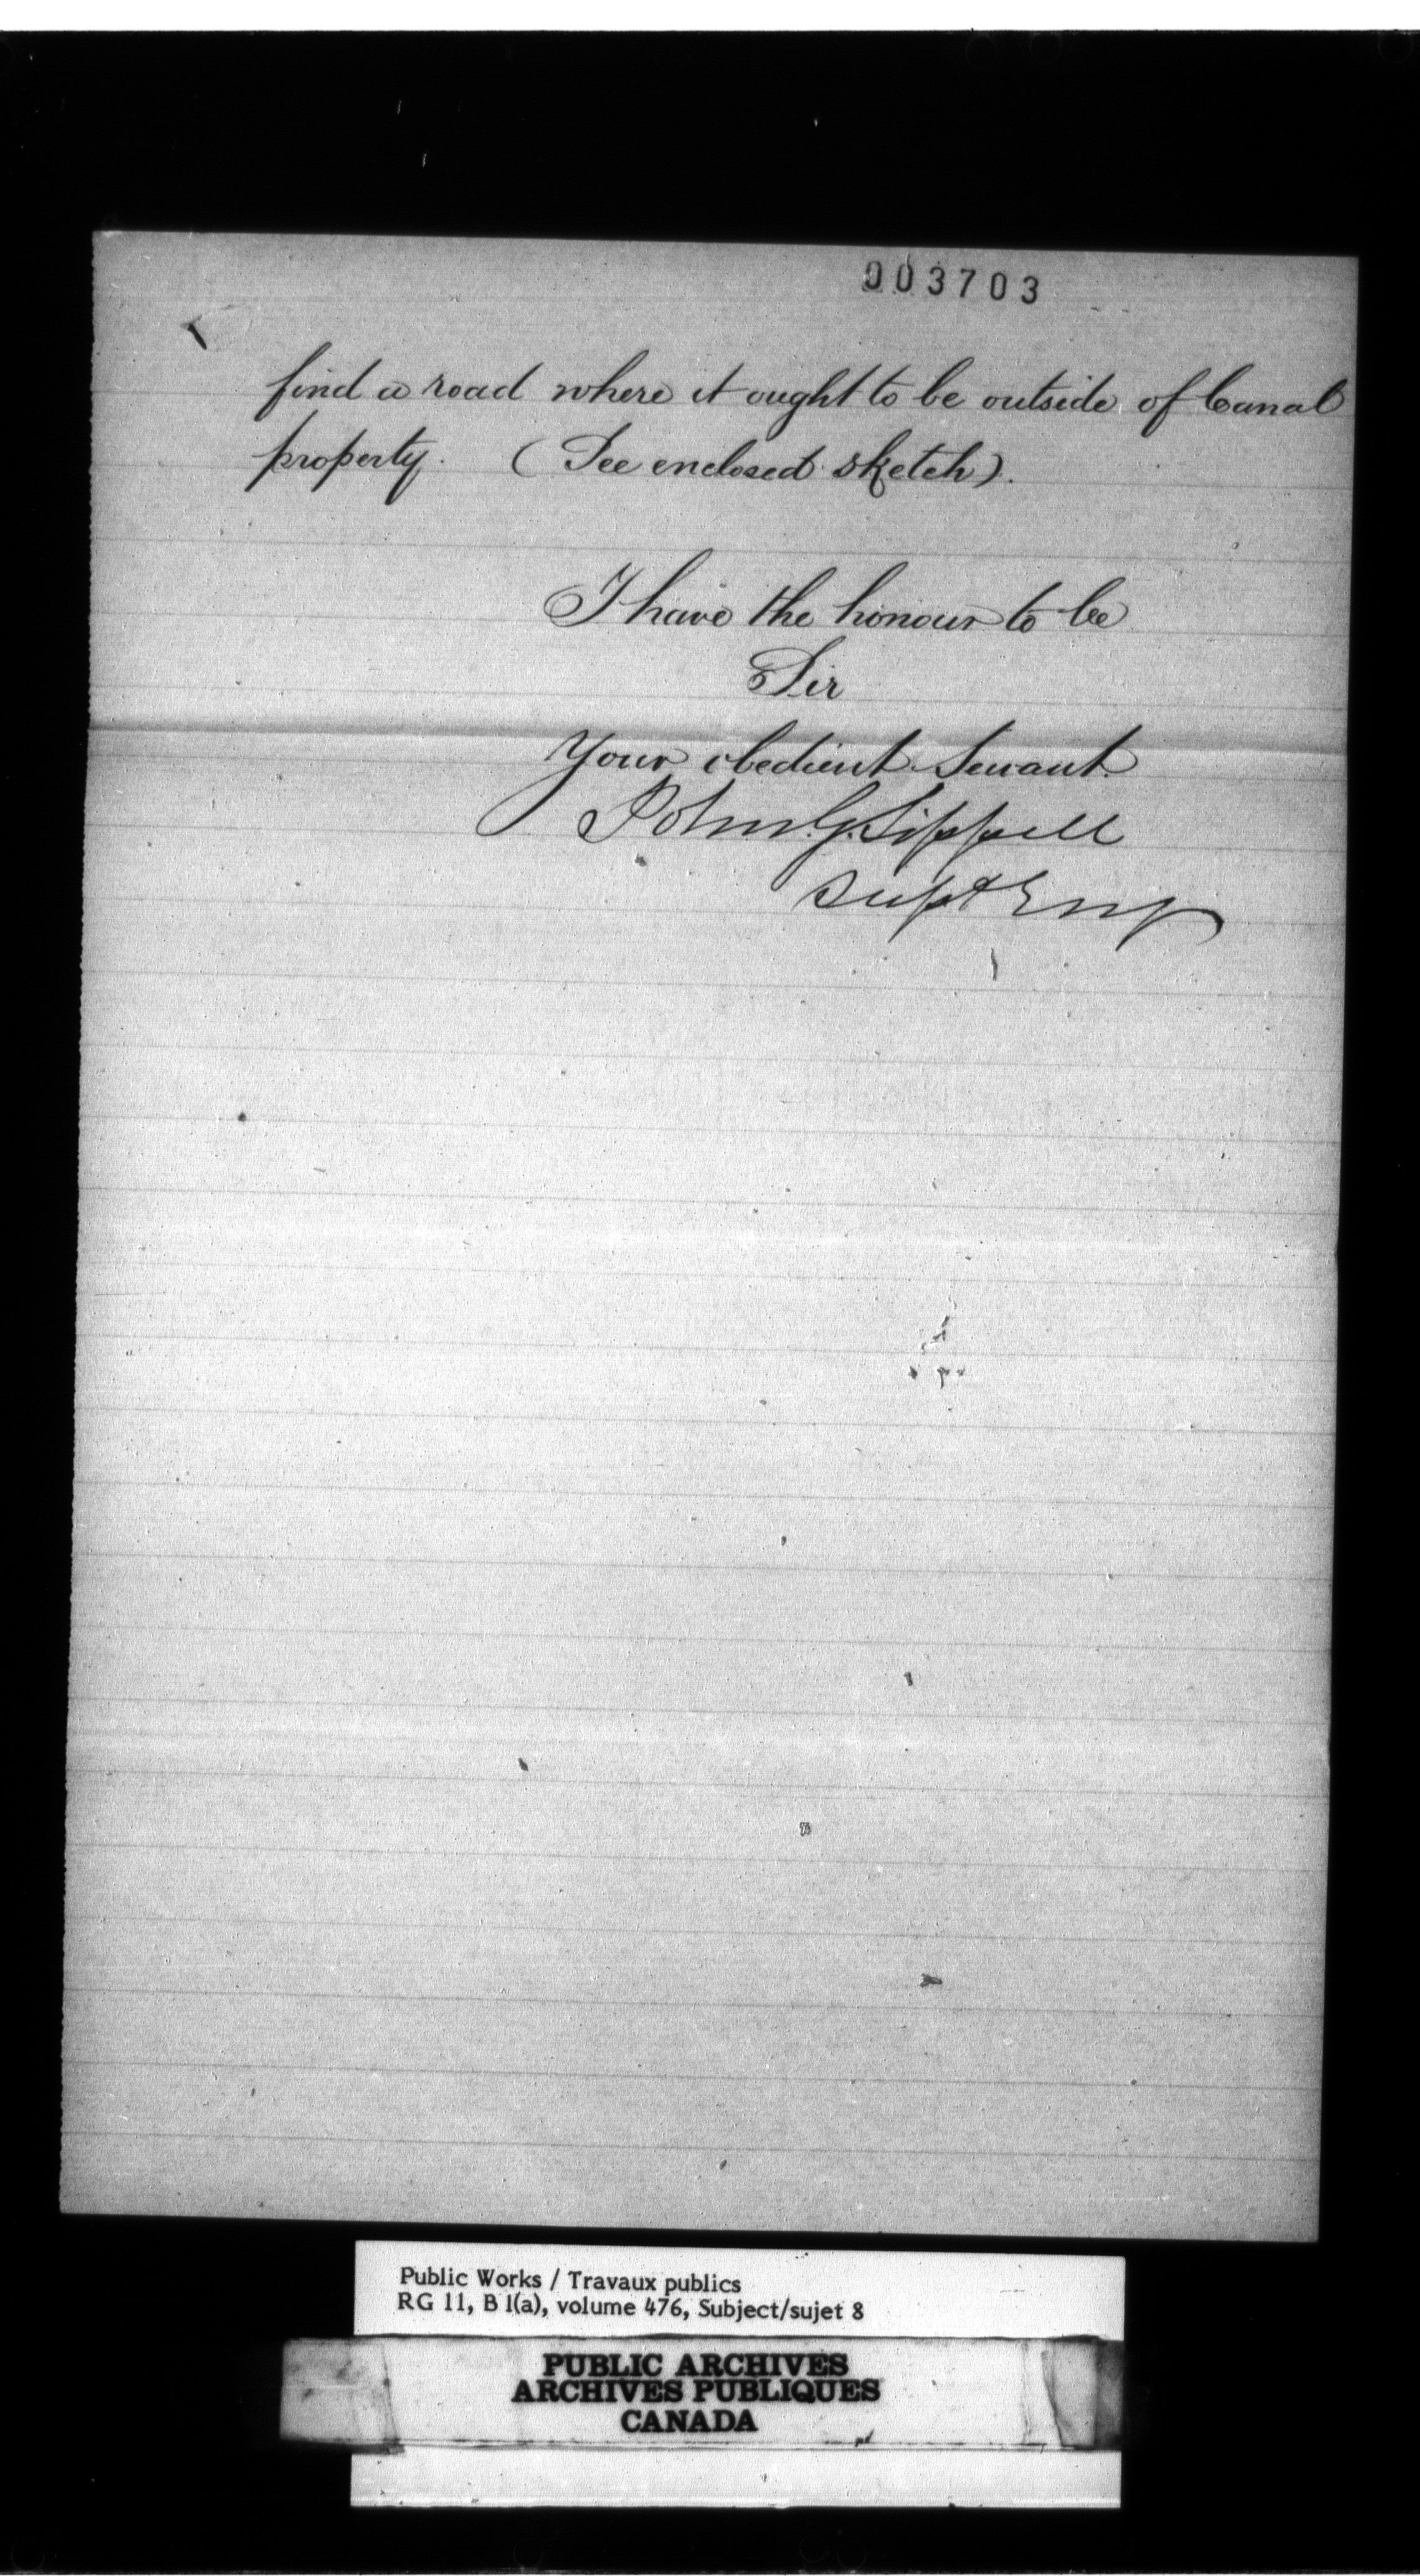 003703
find a road where it ought to be outside of Canal
property. (See enclosed sketch).
I have the honour to be
Sir
Your obedient Servant
John G. Sippell
Supt Eng
Public Works / Travaux publics
RG 11, B 1(a), volume 476, Subject/sujet 8
PUBLIC ARCHIVES
ARCHIVES PUBLIQUES
CANADA